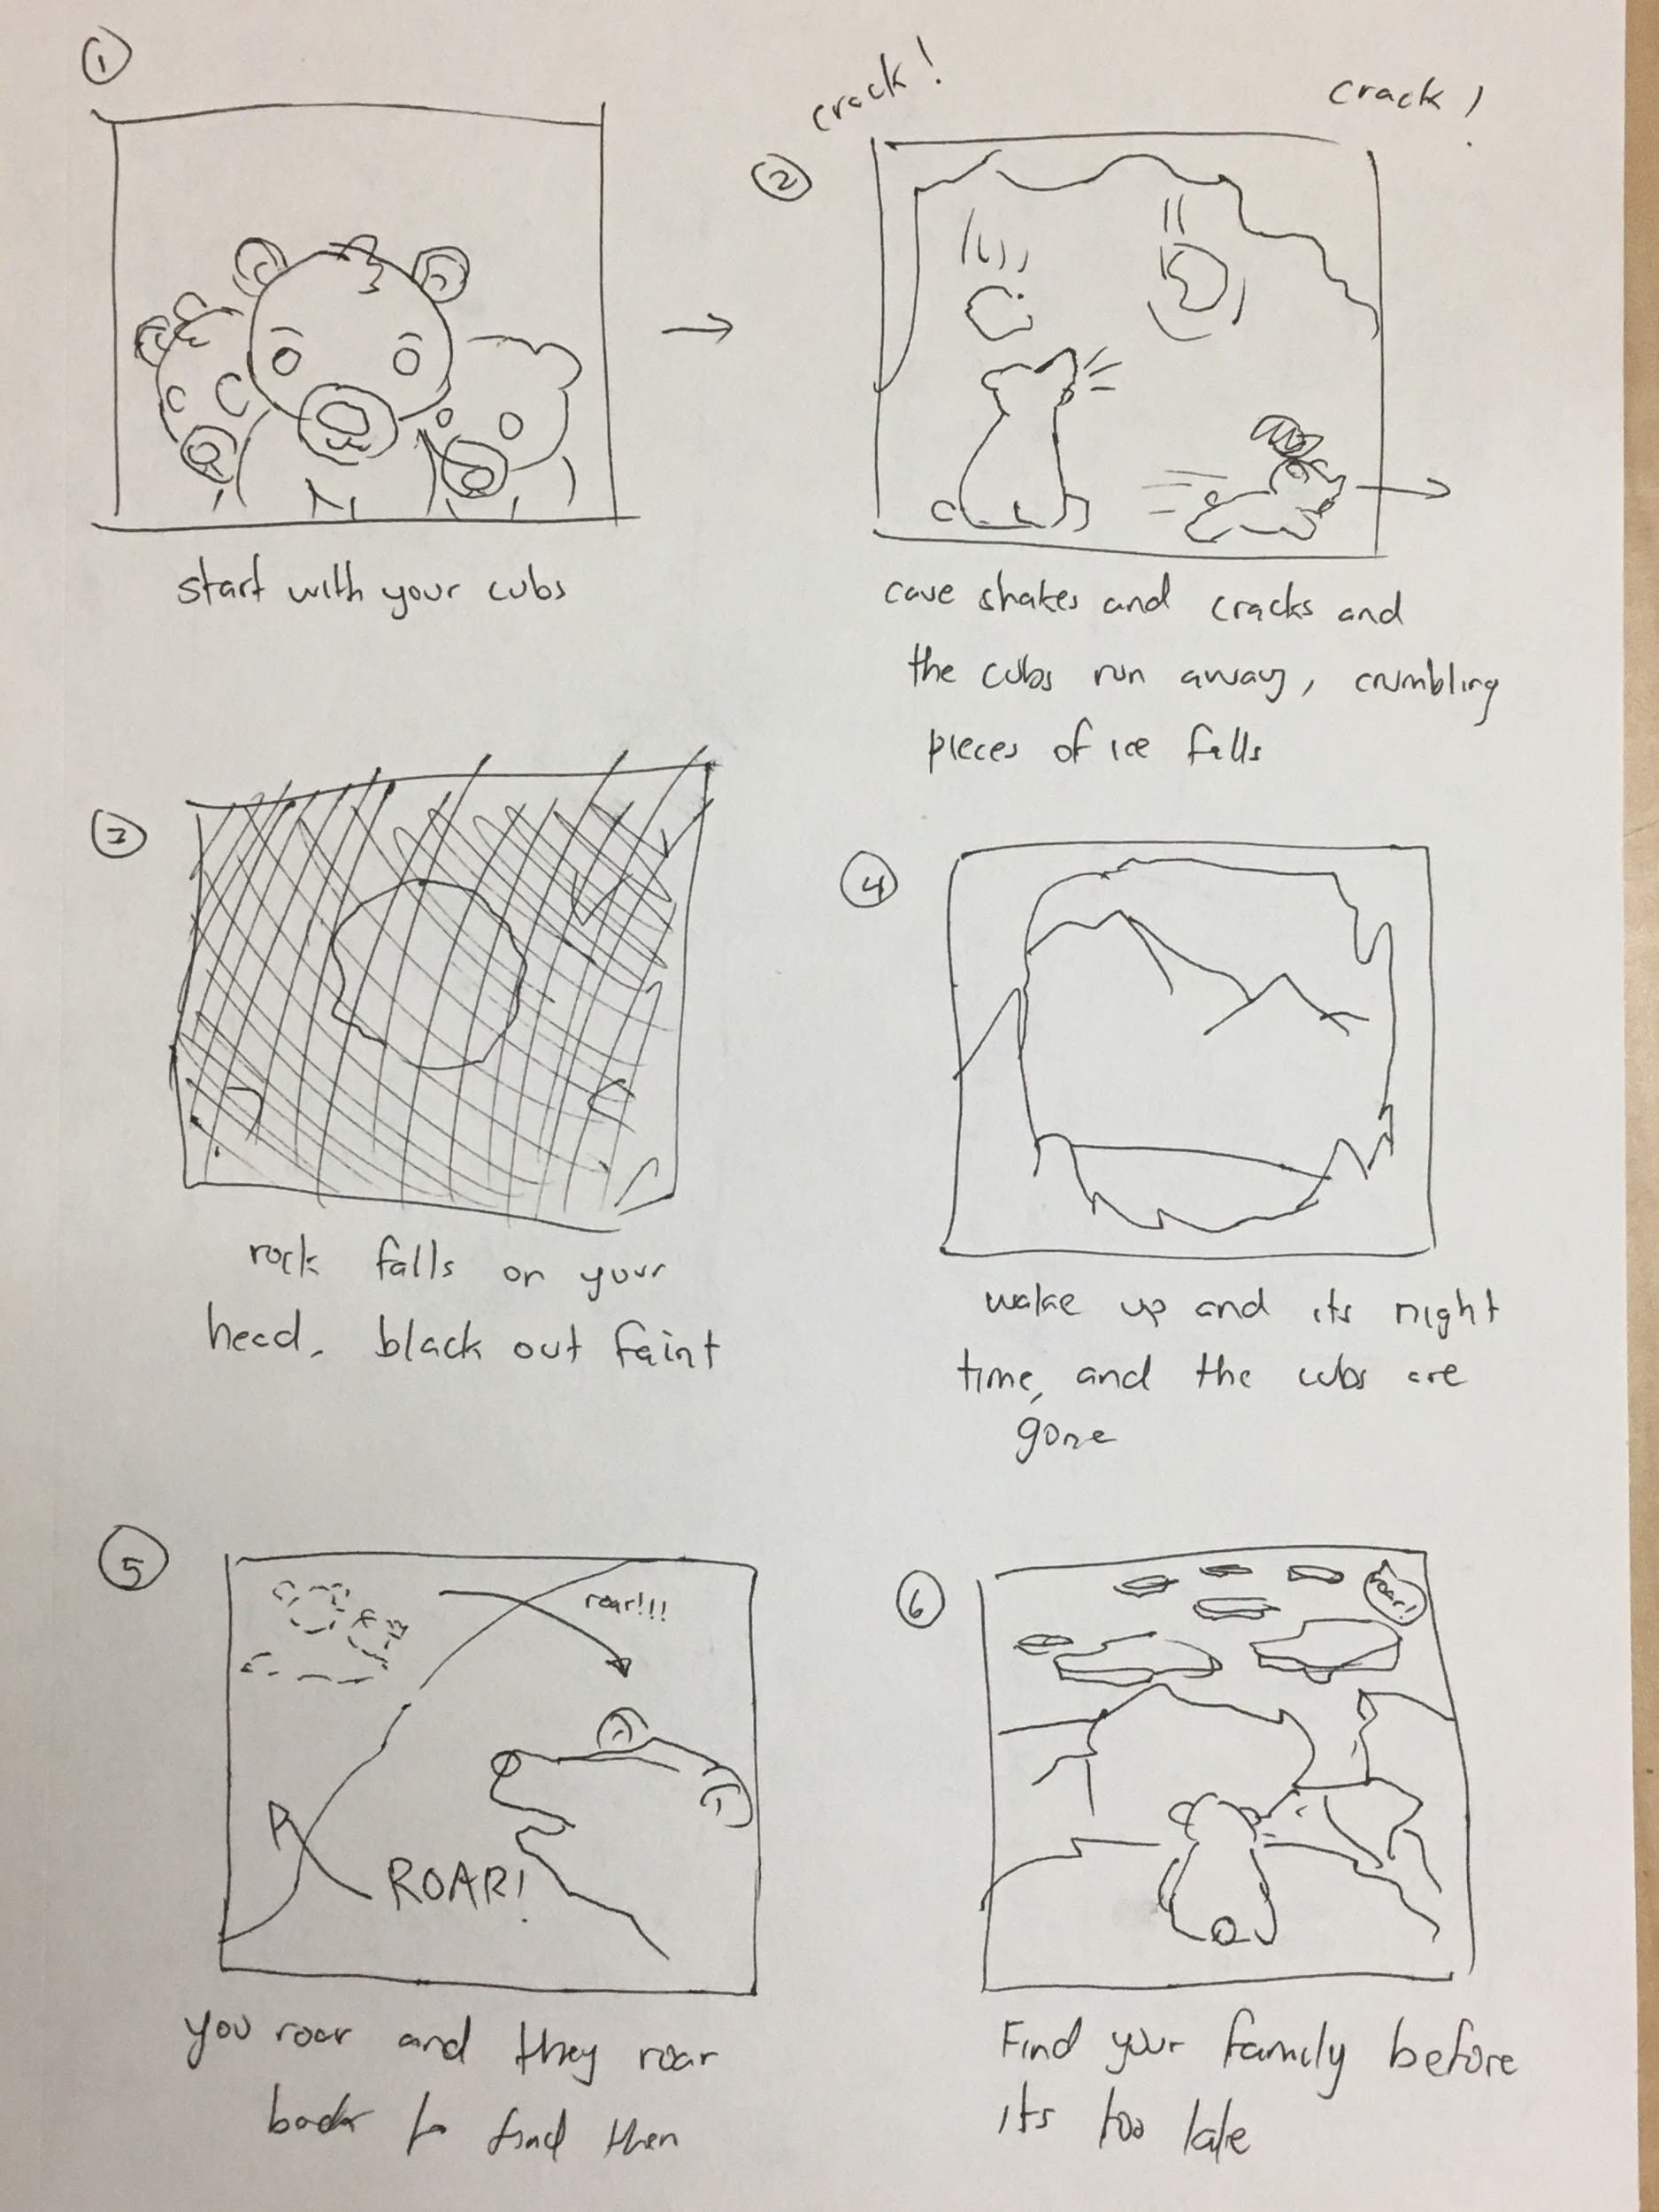 1
start with your cubs
crack!
crack!
2
cave shakes and cracks and
the cubs run away, crumbling
pieces of ice falls
3
rock falls on your
head. black out faint
4
wake up and its night
time, and the cubs are
gone
5
roar!!!
ROAR!
you roar and they roar
back to find then
6
roar!
Find your family before
its too late